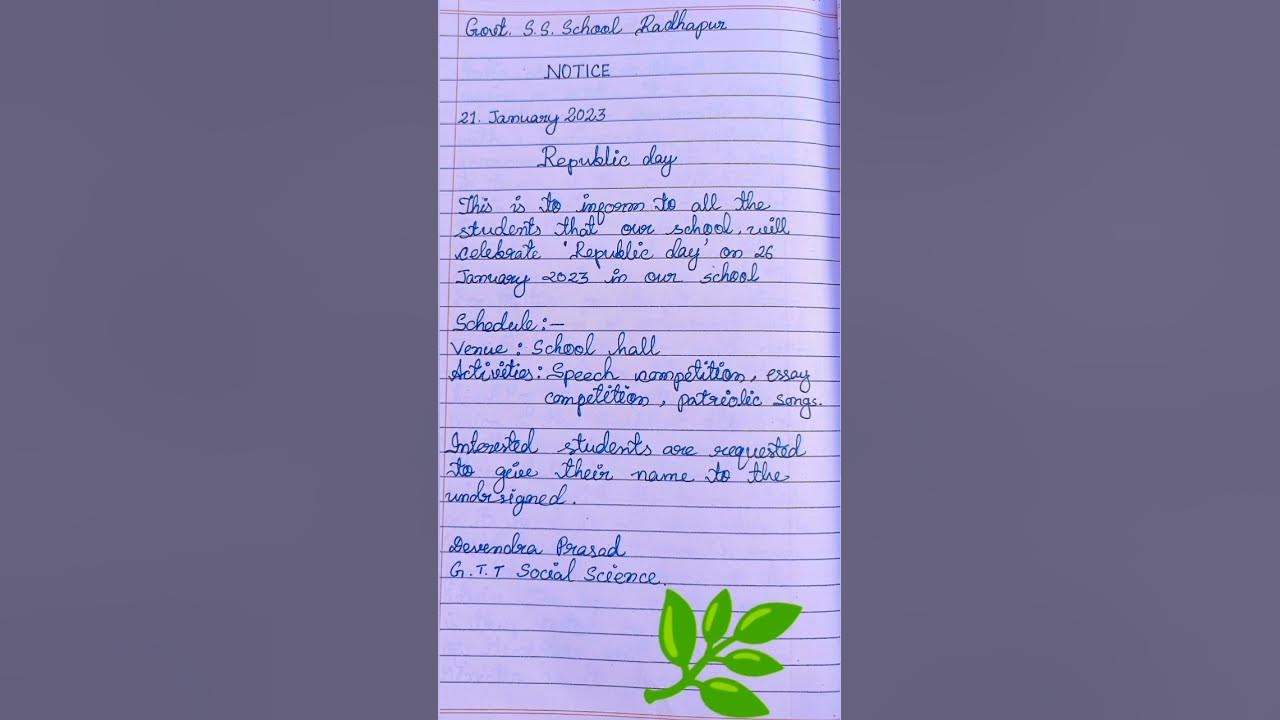 Govt. S.S. School Radhapur
NOTICE
21. January 2023
Republic day
This is to inform to all the
students that our school, will
celebrate 'Republic day' on 26
January 2023 in our school
Schedule :-
Venue : School hall
Activities : Speech competition, essay
competition, patriolic songs.
Interested students are requested
to give their name to the
undrsigned.
Devendra Prasad
G.T.T Social Science.